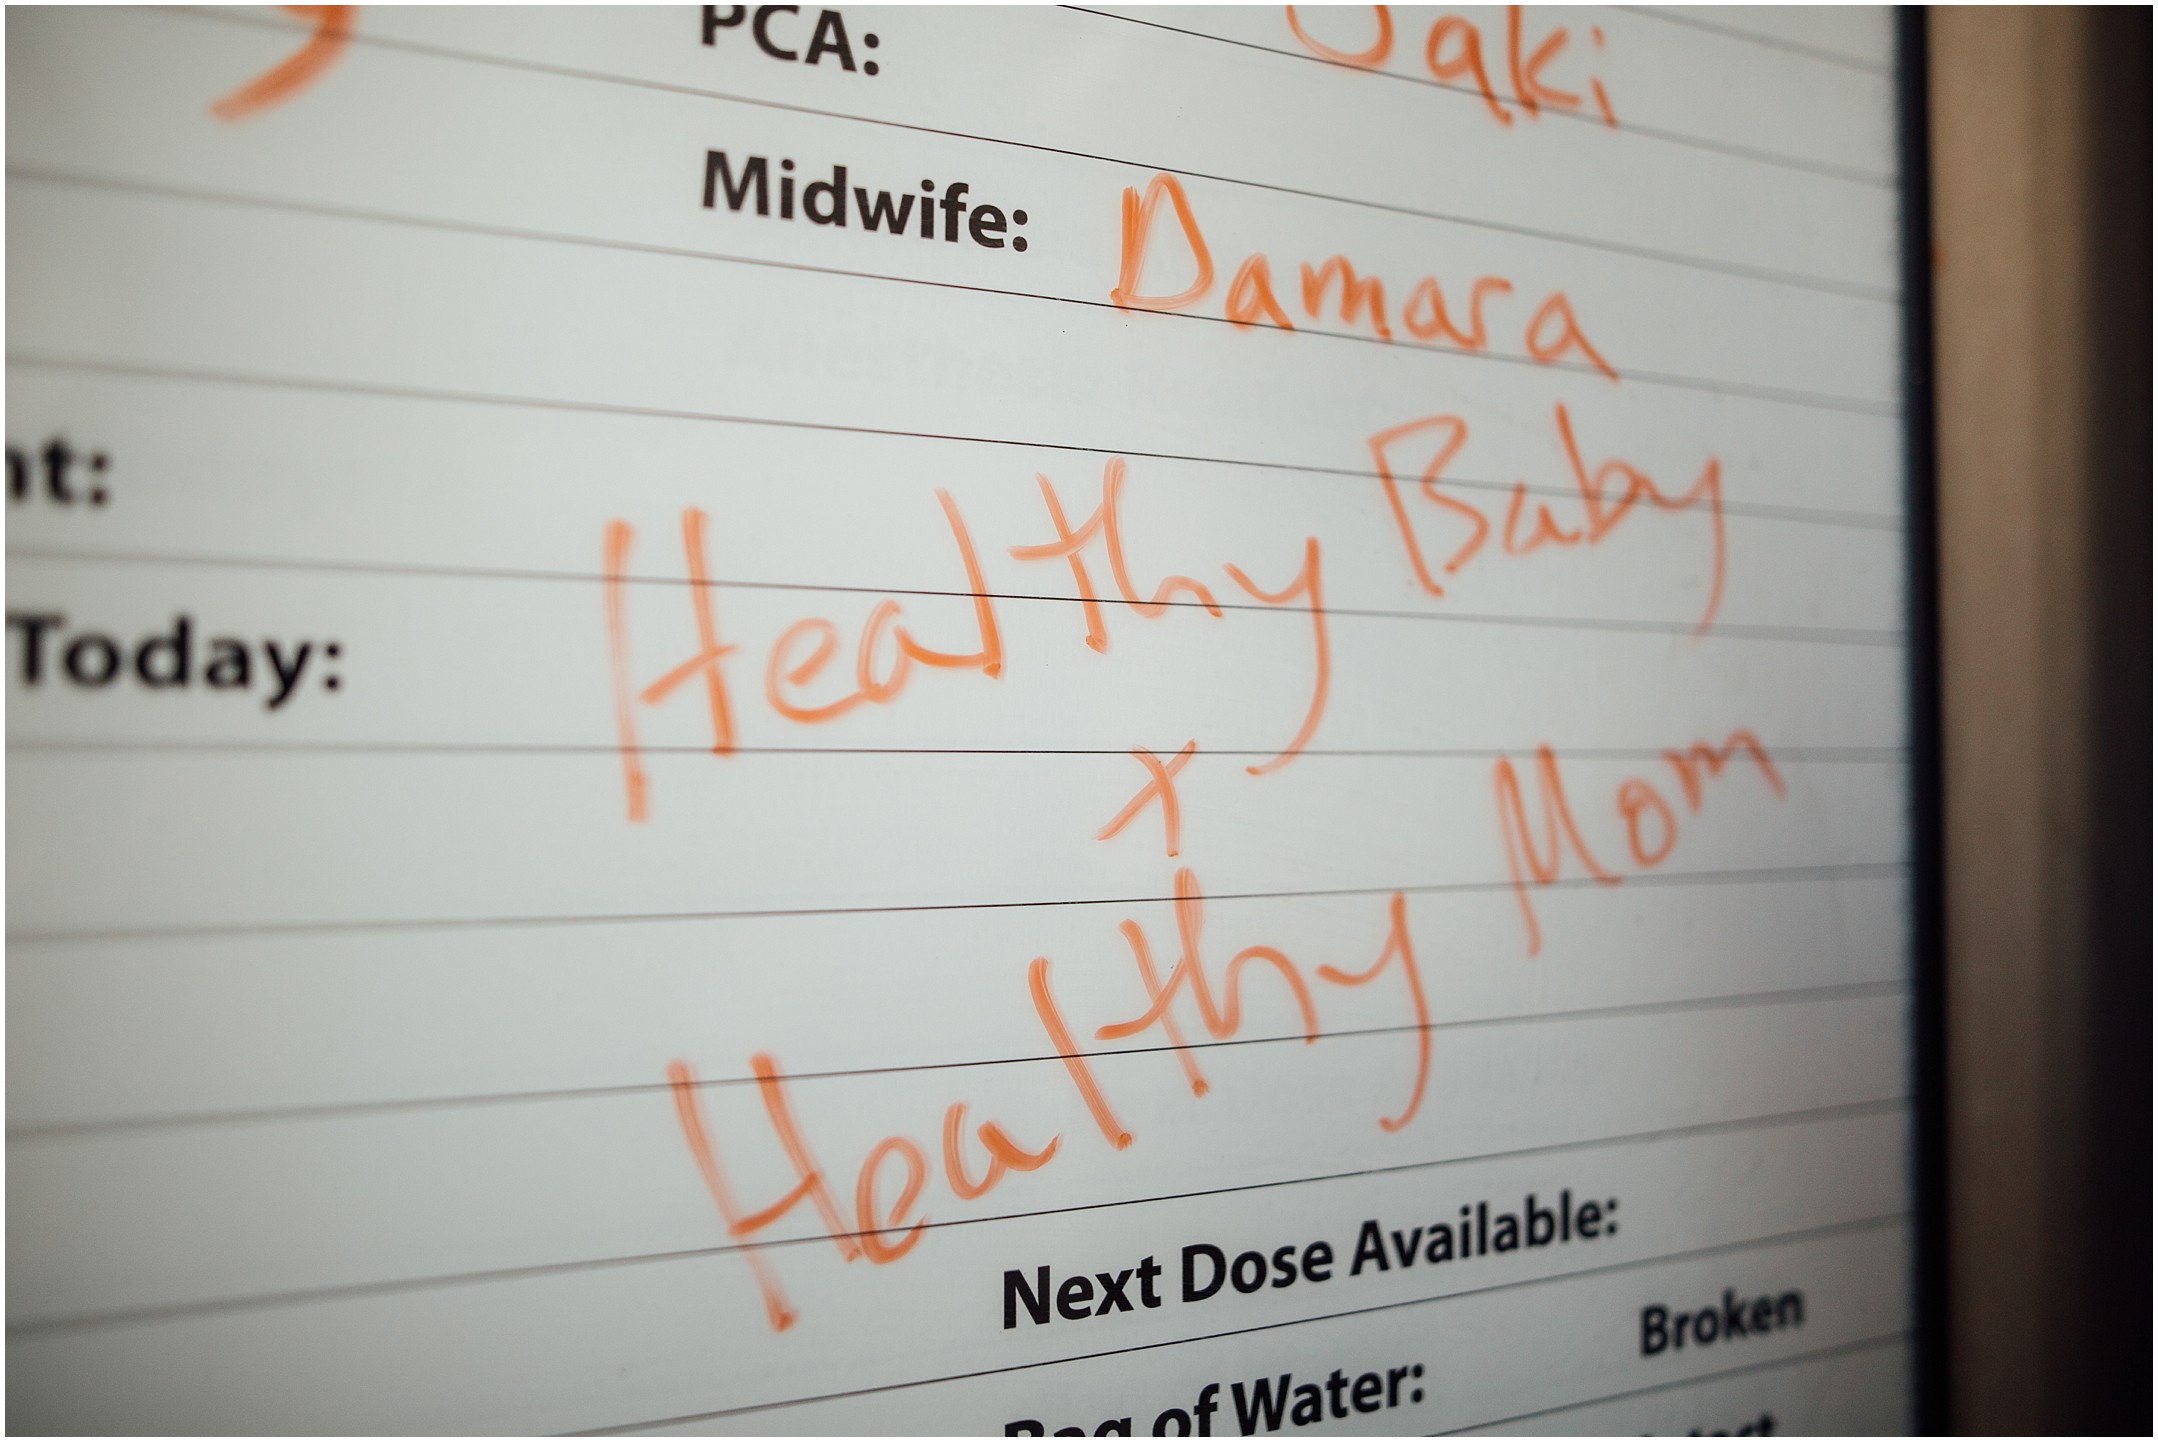 PCA: Jaki
Midwife: Damara
Today: Healthy Baby
+
Healthy Mom
Next Dose Available:
Bag of Water: Broken